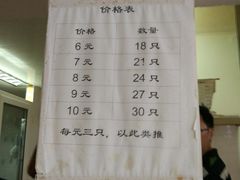 价格表
价格 数量
6 元 18 只
7 元 21 只
8 元 24 只
9 元 27 只
10 元 30 只
每元三只，以此类推